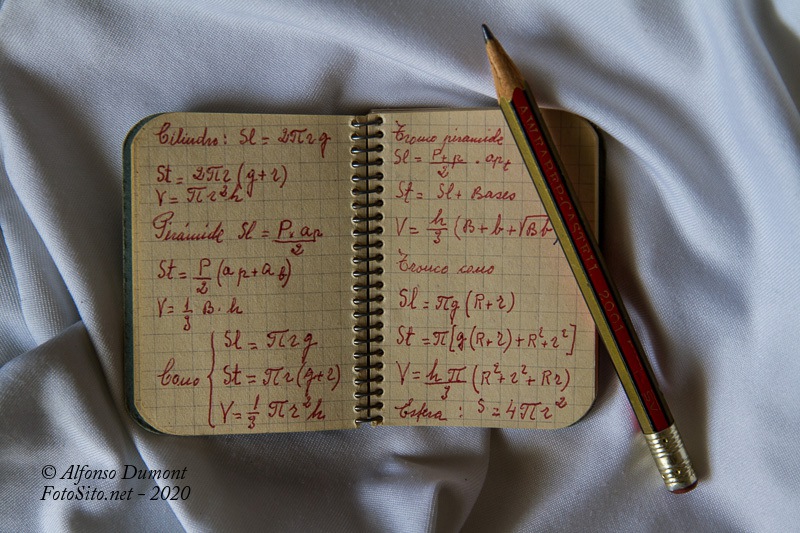 Cilindro: Sl = 2πrg
St = 2πr (g+r)
V = πr²h
Pirámide Sl = P×ap/2
St = P/2 (ap+ab)
V = 1/3 B·h
Cono { Sl = πrg
St = πr(g+r)
V = 1/3 πr²h
Tronco pirámide
Sl = P+p/2 · apt
St = Sl + Bases
V = h/3 (B+b+√Bb)
Tronco cono
Sl = πg (R+r)
St = π[g(R+r)+R²+r²]
V = hπ/3 (R²+r²+Rr)
Esfera: S = 4πr²
A.W. FABER-CASTELL 2001
© Alfonso Dumont
FotoSito.net - 2020